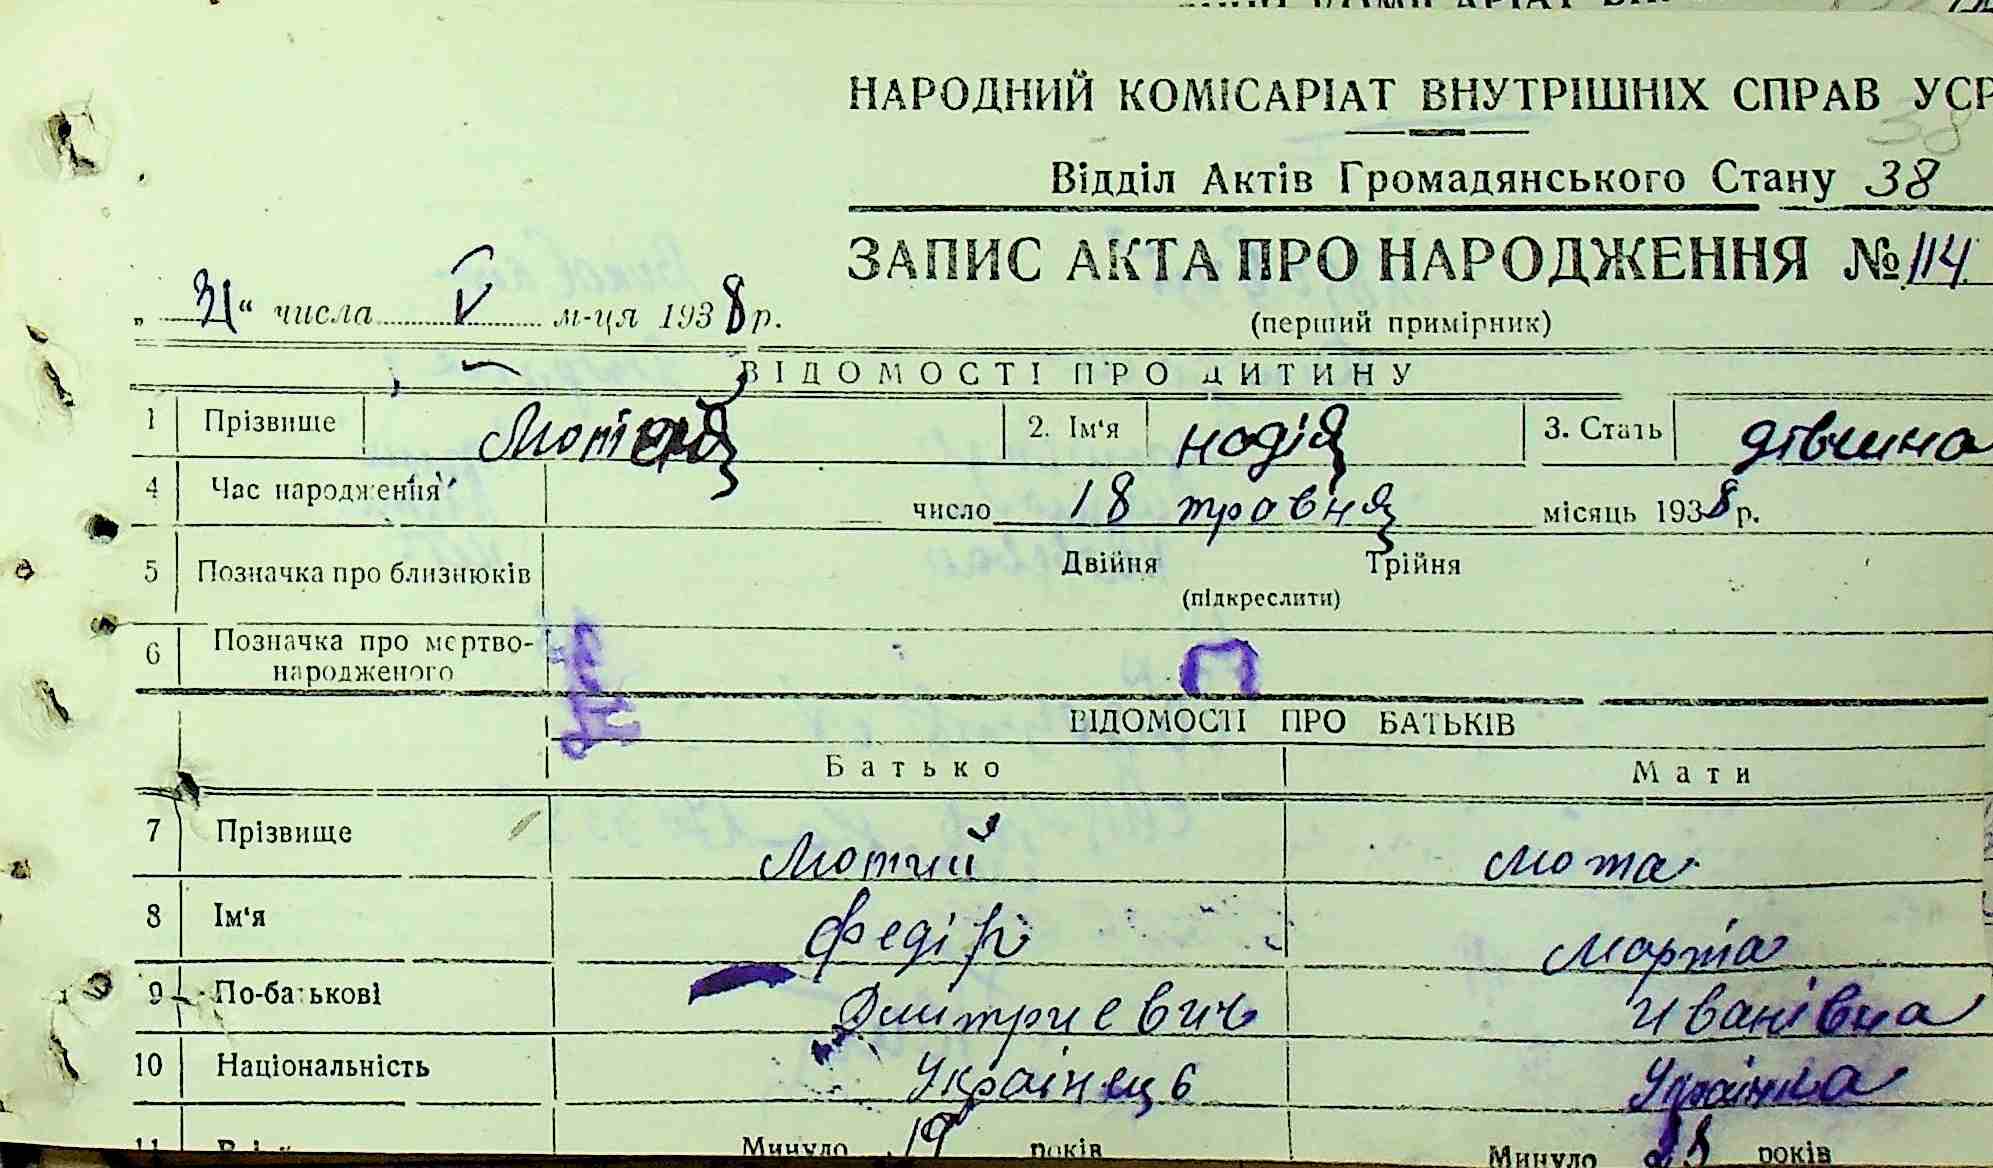 НАРОДНИЙ КОМІСАРІАТ ВНУТРІШНІХ СПРАВ УСР
38
Відділ Актів Громадянського Стану 38
ЗАПИС АКТА ПРО НАРОДЖЕННЯ № 114
„31“ числа V м-ця 1938 р.
(перший примірник)
ВІДОМОСТІ ПРО ДИТИНУ
1 Прізвище 2. Ім‘я надія 3. Стать дівчина
4 Час народження число 18 травня місяць 1938 р.
5 Позначка про близнюків Двійня Трійня
(підкреслити)
6 Позначка про мертво-
народженого
ВІДОМОСТІ ПРО БАТЬКІВ
Батько Мати
7 Прізвище Мотий мота
8 Ім‘я Федір Марта
9 По-батькові Дмитриевич иванівна
10 Національність Українець Українка
11 Минуло 19 років Минуло років